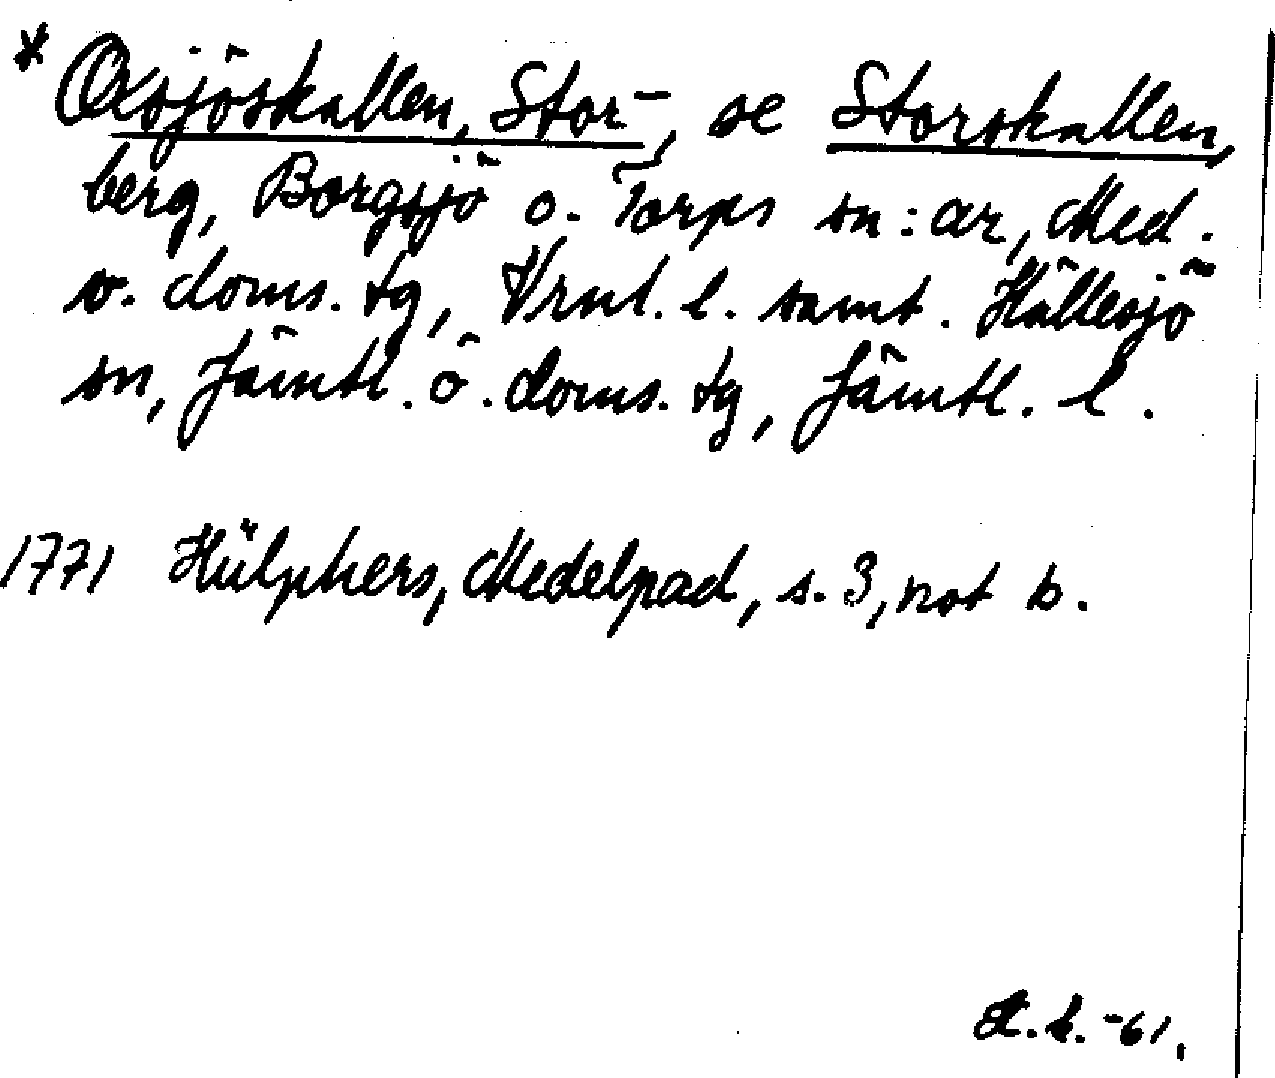 * Oxsjöskallen, Stor-, se Storskallen,
berg, Borgsjö o. Torps sn:ar, Med.
v. doms. tg, Vrnl. l. samt. Hällesjö
sn, Jämtl. ö. doms. tg, Jämtl. l.
1771 Hülphers, Medelpad, s. 3, not b.
-61.